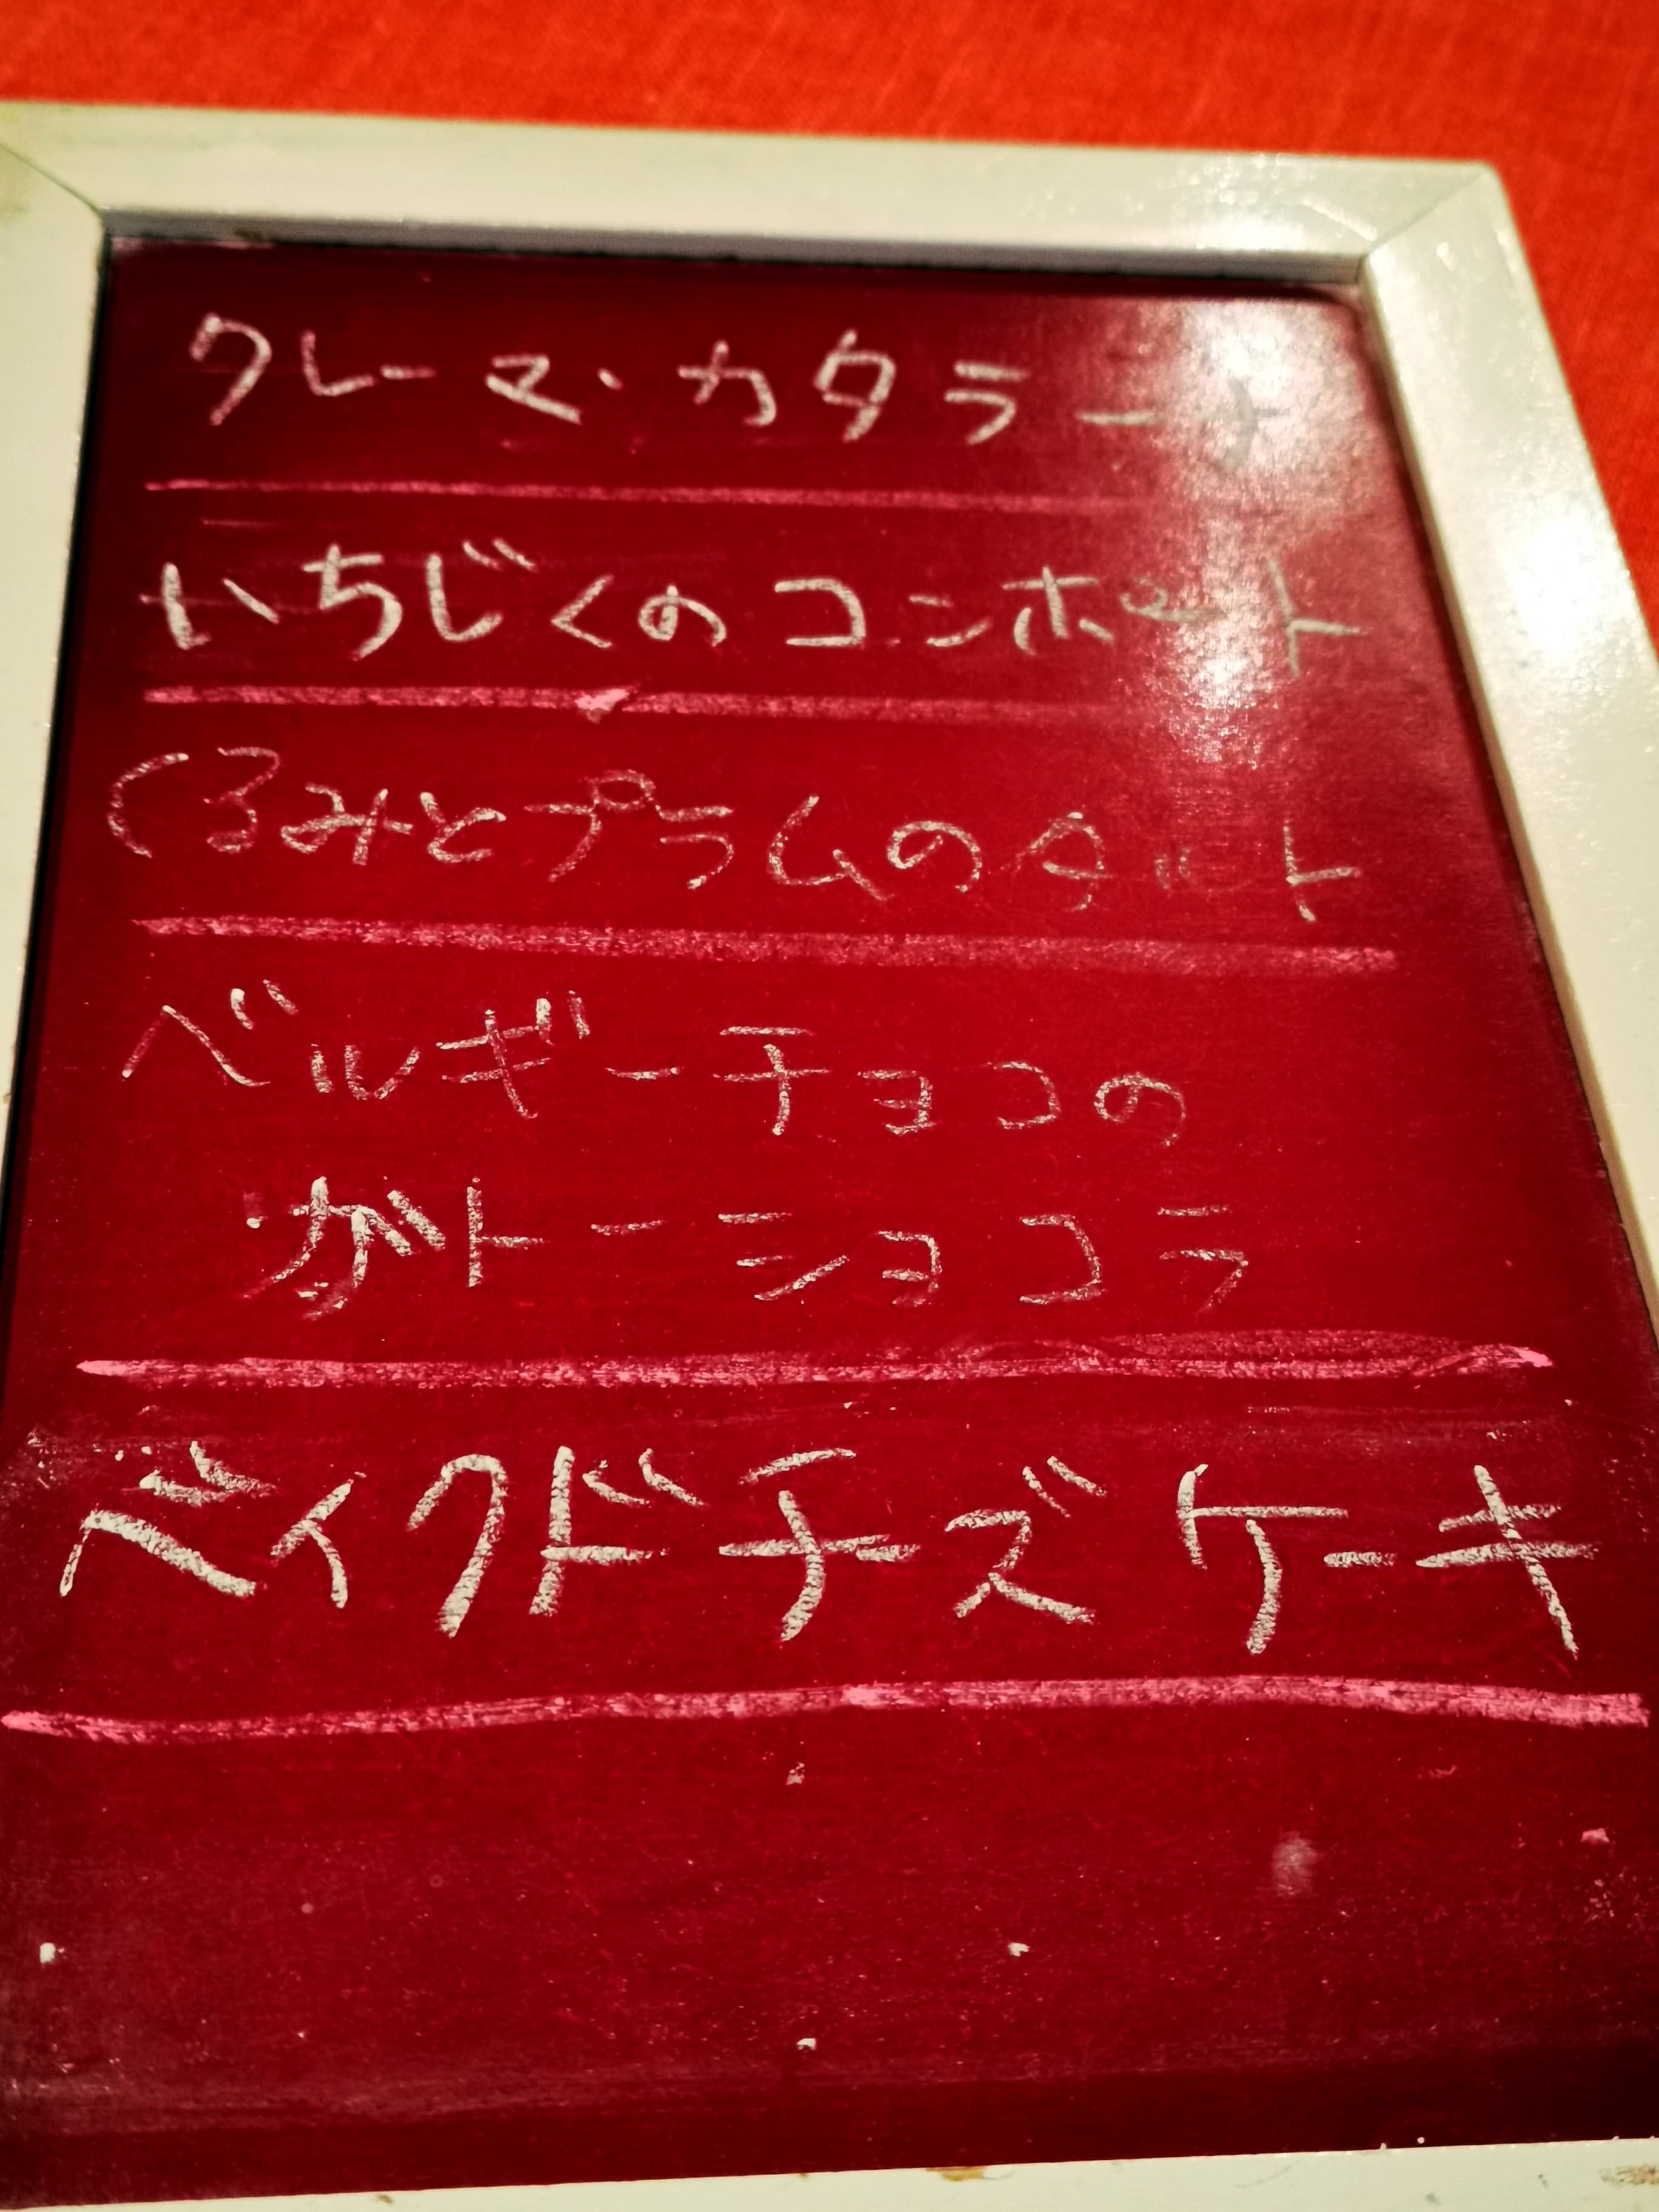 クレーマ・カタラーナ
いちじくのコンポート
くるみとプラムのタルト
ベルギーチョコの
ガトーショコラ
ベイクドチズケーキ